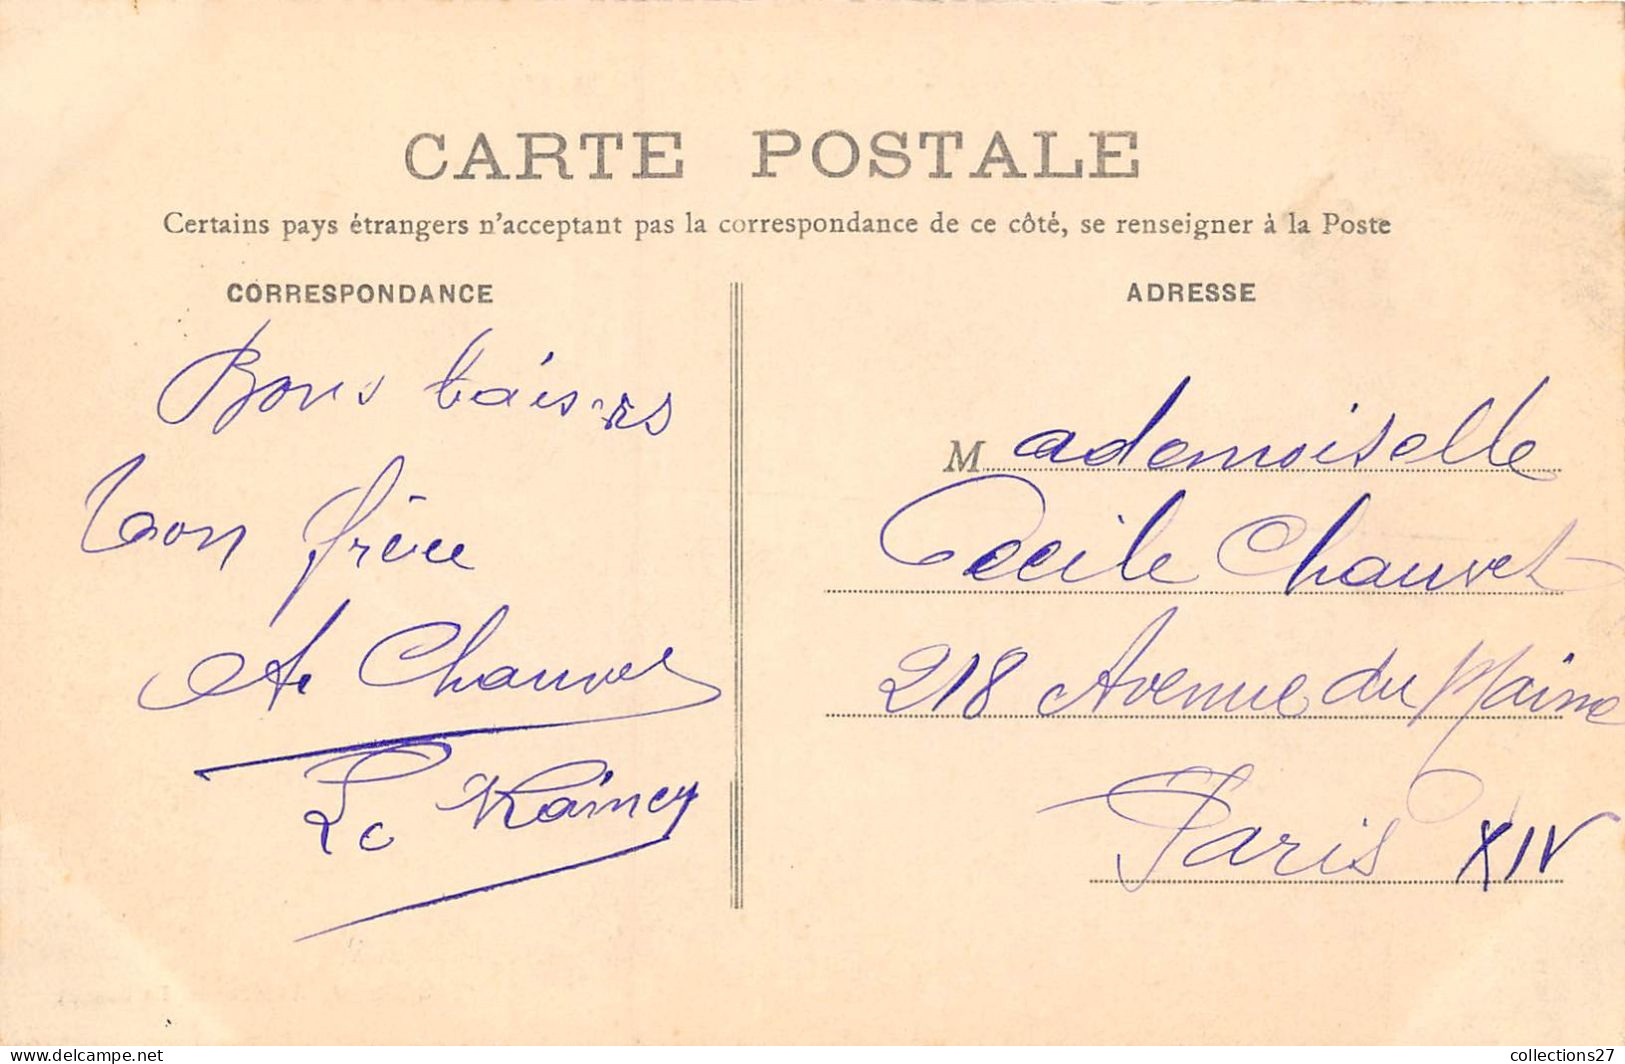 CARTE POSTALE
Certains pays étrangers n'acceptant pas la correspondance de ce côté, se renseigner à la Poste
CORRESPONDANCE
Bons baisers
ton frère
Chauvet
Le Raincy
ADRESSE
Mademoiselle
Cecile Chauvet
218 Avenue du Maine
Paris XIV
collections27